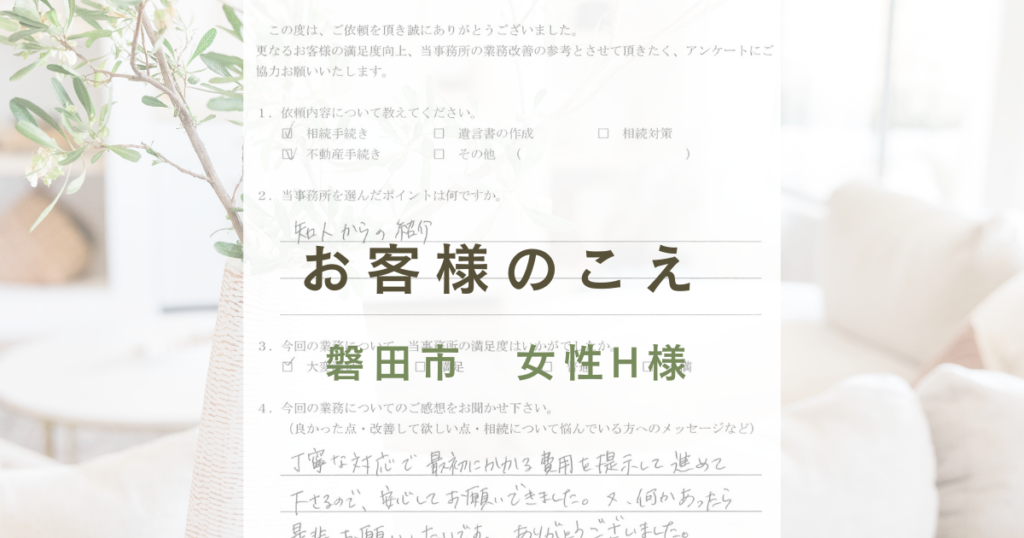 この度は、ご依頼を頂き誠にありがとうございました。
更なるお客様の満足度向上、当事務所の業務改善の参考とさせて頂きたく、アンケートにご
協力お願いいたします。
1．依頼内容について教えてください。
☑ 相続手続き □ 遺言書の作成 □ 相続対策
☑ 不動産手続き □ その他 （ ）
2．当事務所を選んだポイントは何ですか。
知人からの紹介
お客様のこえ
3．今回の業務について、当事務所の満足度はいかがでしたか。
磐田市 女性H様
4．今回の業務についてのご感想をお聞かせ下さい。
（良かった点・改善して欲しい点・相続について悩んでいる方へのメッセージなど）
丁寧な対応で最初にかかる費用を提示して進めて
下さるので、安心してお願いできました。又、何かあったら
是非お願いしたいです。ありがとうございました。